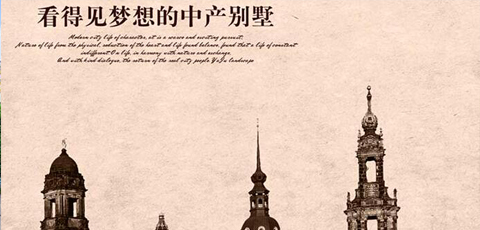 看得见梦想的中产别墅
Modern city life of character, it is a scarce and exciting pursuit.
Nature of life from the physical, seduction of the heart and life found balance, found that a life of constant
indifferent O a life, in harmony with nature and exchange.
And with kind dialogue, the return of the real city people YaJu landscape